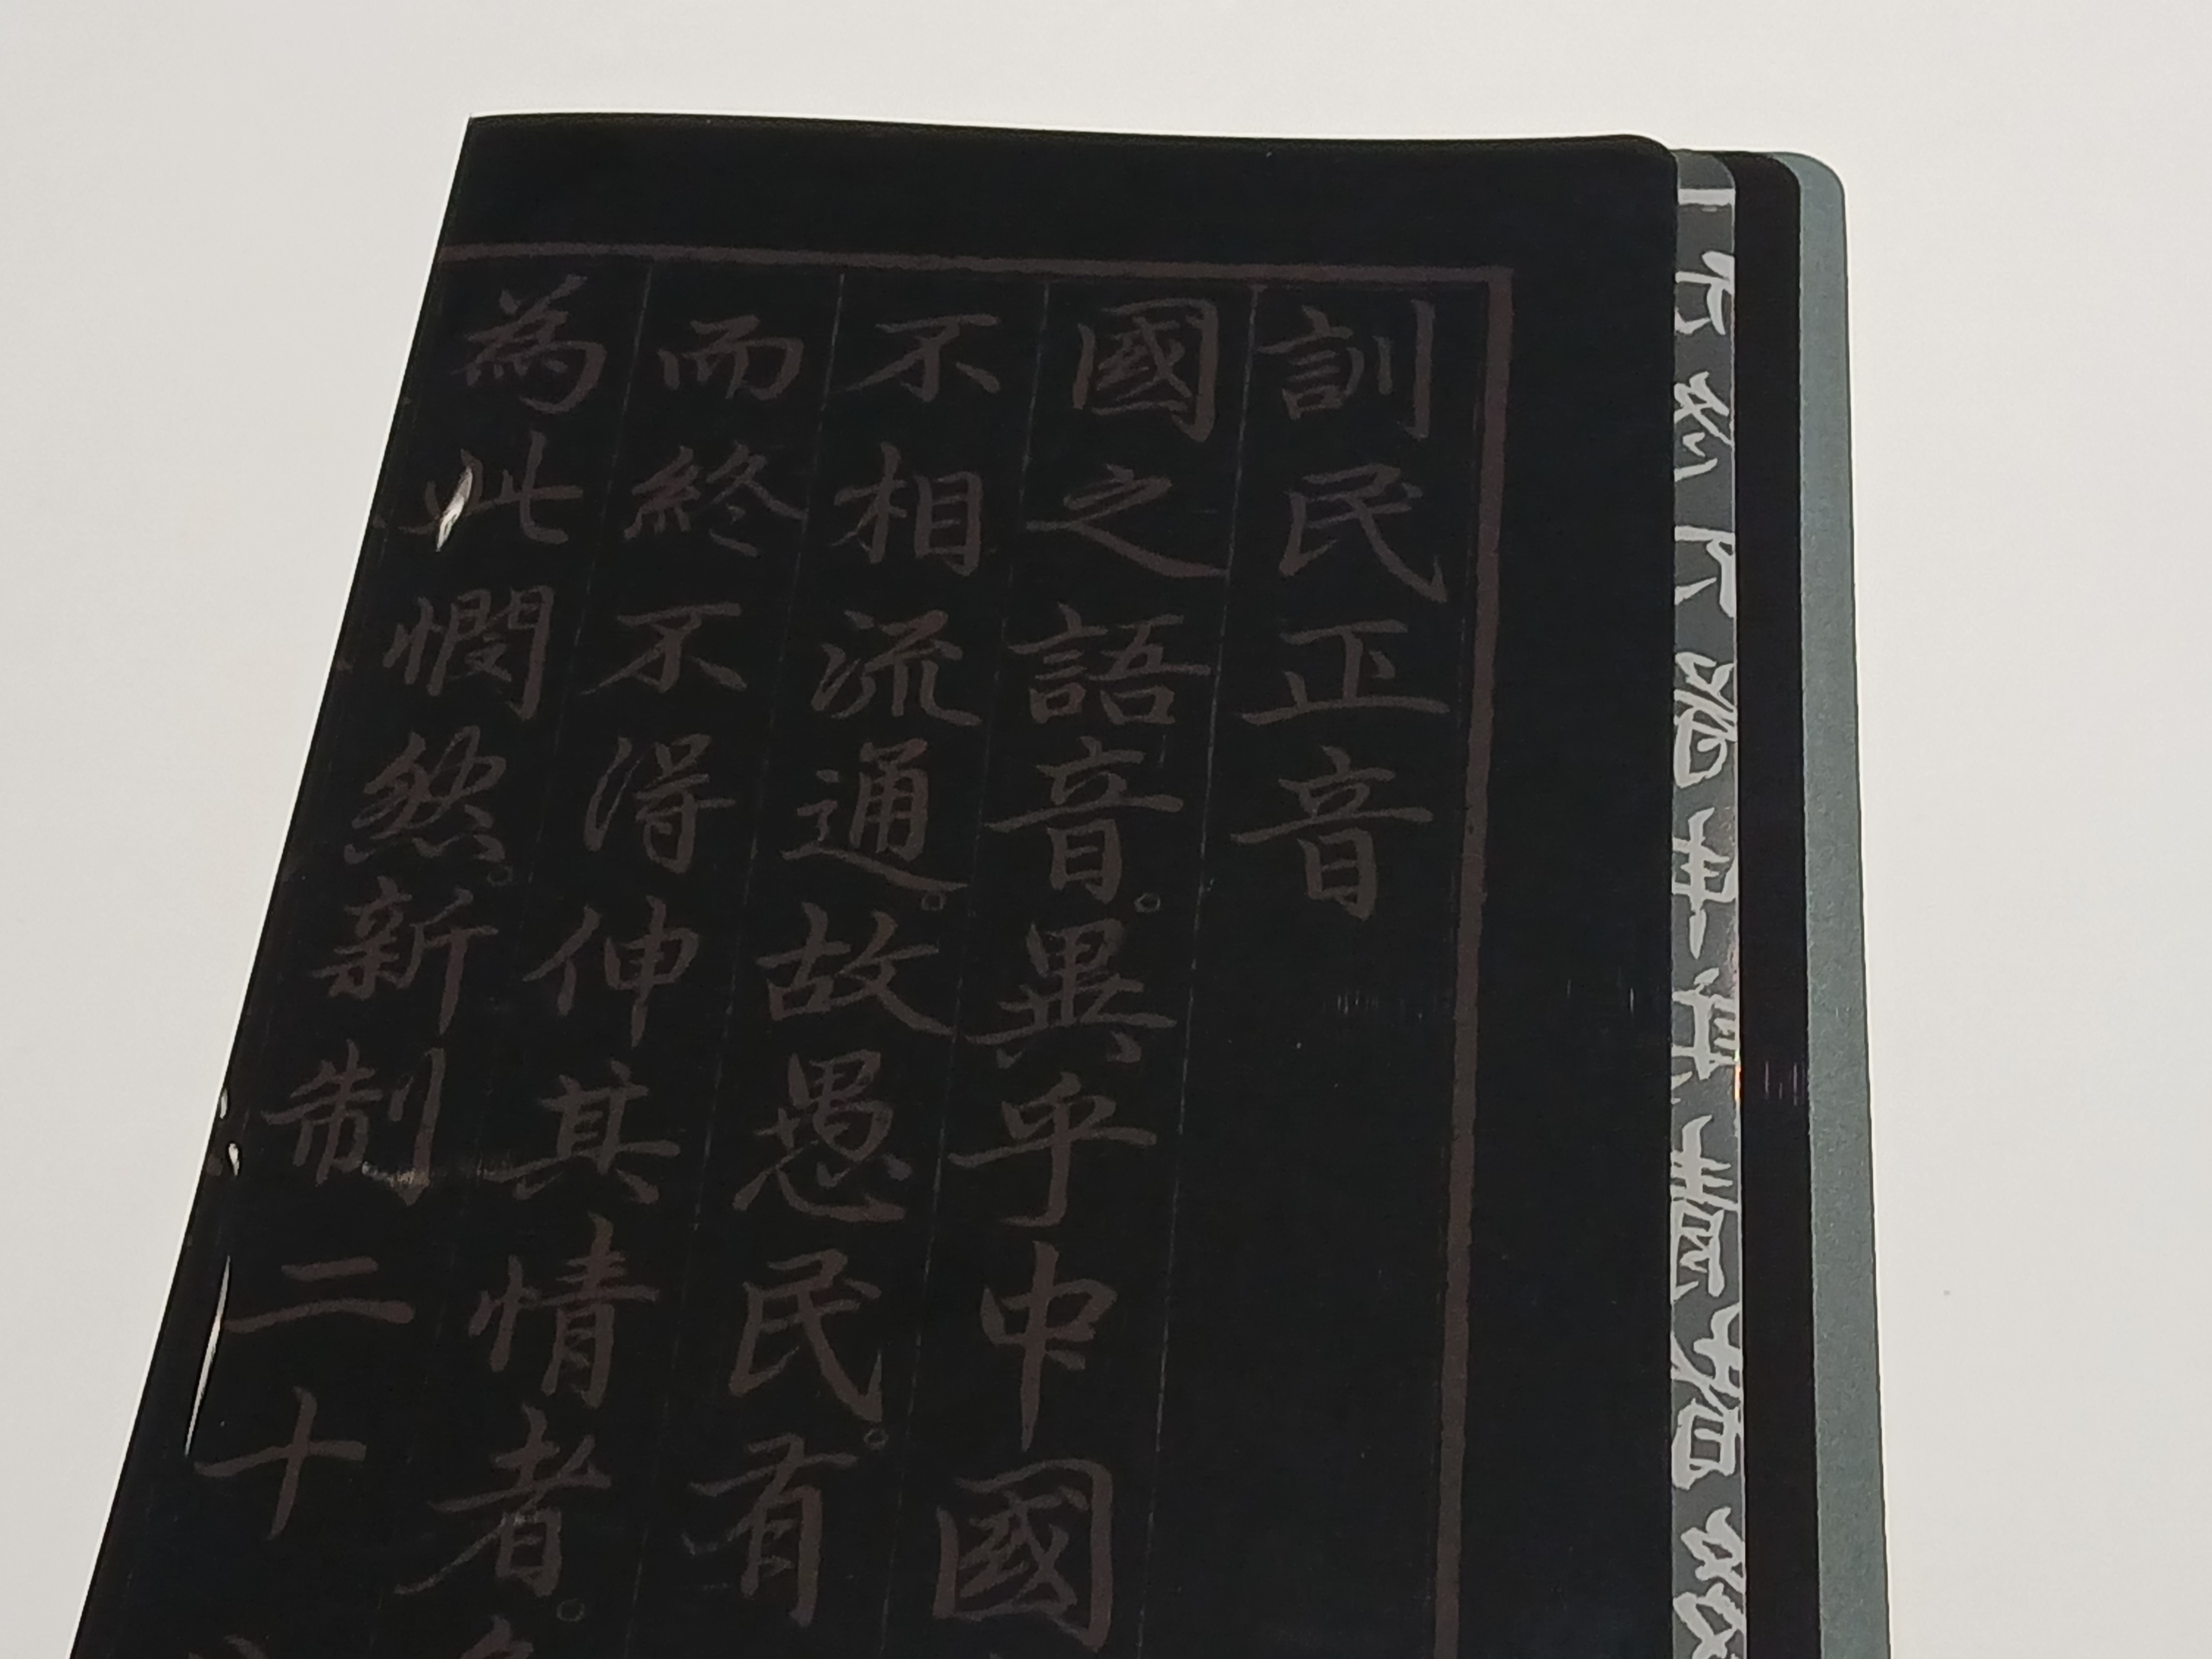 訓民正音
國之語音。異乎中國
不相流通。故愚民。有
而終不得伸其情者。
為此憫然。新制二十